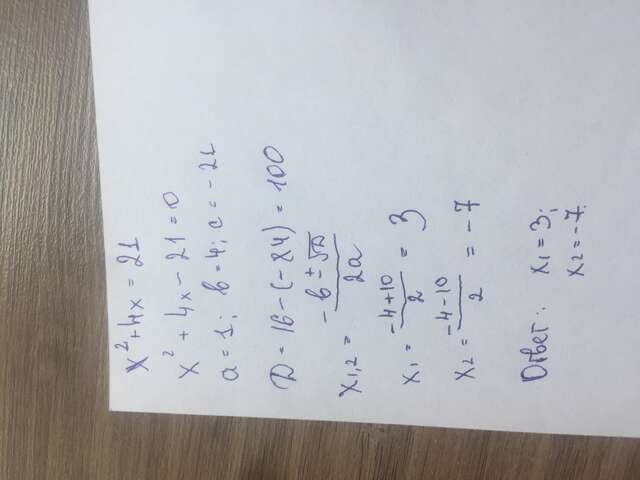 x² + 4x = 21
x² + 4x - 21 = 0
a = 1; b = 4; c = -21
D = 16 - (-84) = 100
x₁,₂ = (-b ± √D) / 2a
x₁ = (-4 + 10) / 2 = 3
x₂ = (-4 - 10) / 2 = -7
Ответ: x₁ = 3;
x₂ = -7.